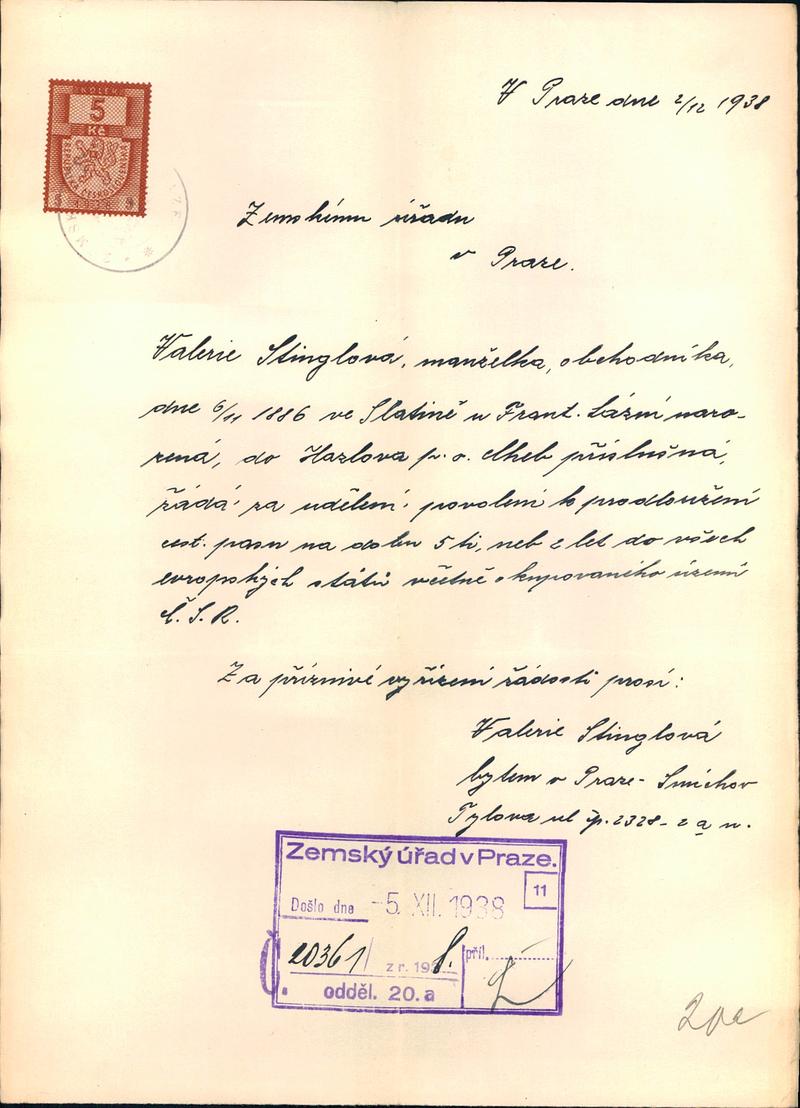 KOLEK
5
Kč
V Praze dne 2/12 1938
Zemskému úřadu
v Praze.
Valerie Stinglová, manželka, obchodníka,
dne 6/11 1886 ve Slatině u Frant. Lázní naro-
zená, do Hazlova p. o. Cheb příslušná,
žádá za udělení povolení k prodloužení
cest. pasu na dobu 5 ti, neb 2 let do všech
evropských států včetně okupovaného území
Č. S. R.
Za příznivé vyřízení žádosti prosí:
Valerie Stinglová
bytem v Praze - Smíchov
Tylova ul čp. 2328 - 2 a n.
Zemský úřad v Praze.
11
Došlo dne -5. XII. 1938
Č. 20361/ z r. 1938. příl.
odděl. 20. a
20a